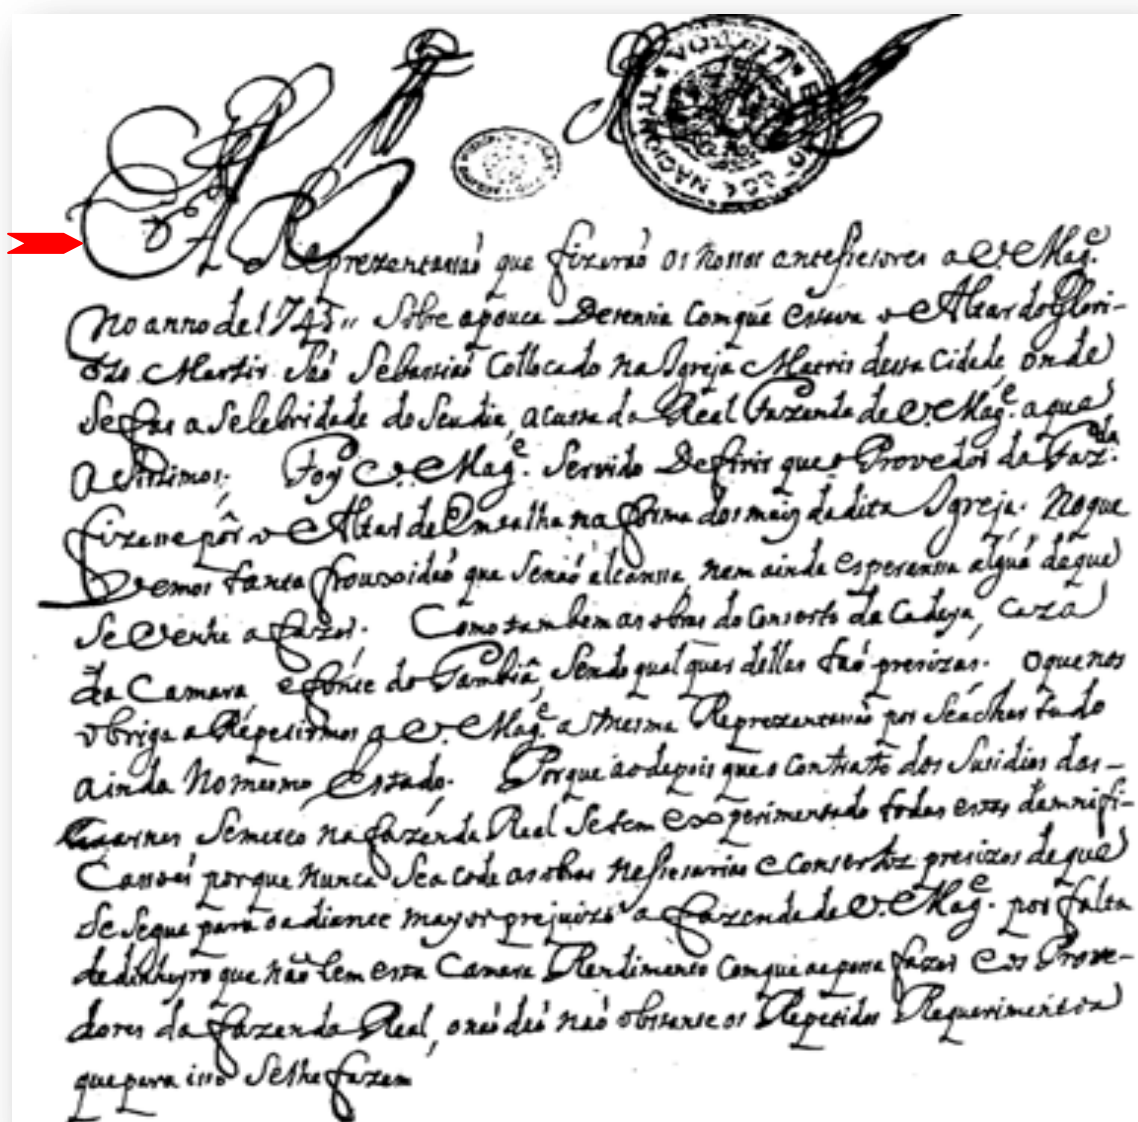 A Reprezentassaõ que fizeraõ os nossos antessesores a V. Mag.e
No anno de 1745,, Sobre apouca Desensia Comque estava o Altar do Glori-
ozo Martir Saõ Sebastiaõ Collocado na Igreja Matris desta Cidade, onde
Sefas a Selebridade do Seudia, acusta da Real Fazenda de V. Mag.e aque
aSistimos; Foy V. Mag.e Servido Defirir que o Provedor da Faz.da
fizesse pôr o Altar de Emtalha na forma dos mais dadita Igreja. Noque
Vemos tanta frouxidaõ que Senaõ alcanssa, nem ainda esperanssa algũa deque
Se Venha afazer. Como tambem as obras do Conserto da Cadeya, caza
da Camara e fonte do Tambiâ, Sendo qual quer dellas taõ presizas. oque nos
obriga a Repetirmos a V. Mag.e a mesma Reprezentassaõ por Seáchar tudo
ainda Nomesmo Estado. Porque aodepois que o Contrato dos Susidios das-
Carnes Semeteo na fazenda Real Setem experimentado todas estas damnifi-
Cassois porque nunca Seacode as obras nessesarias e Consertoz presizos deque
Se Segue para oadiante mayor prejuizo a fazenda de V. Mag.e por falta
dedinheyro que naõ tem esta Camara Rendimento Comque aspossa fazer e os Prove-
dores da fazenda Real, onaõ daõ naõ obstante os Repetidos Requerimentoz
quepara isso Selhe fazem